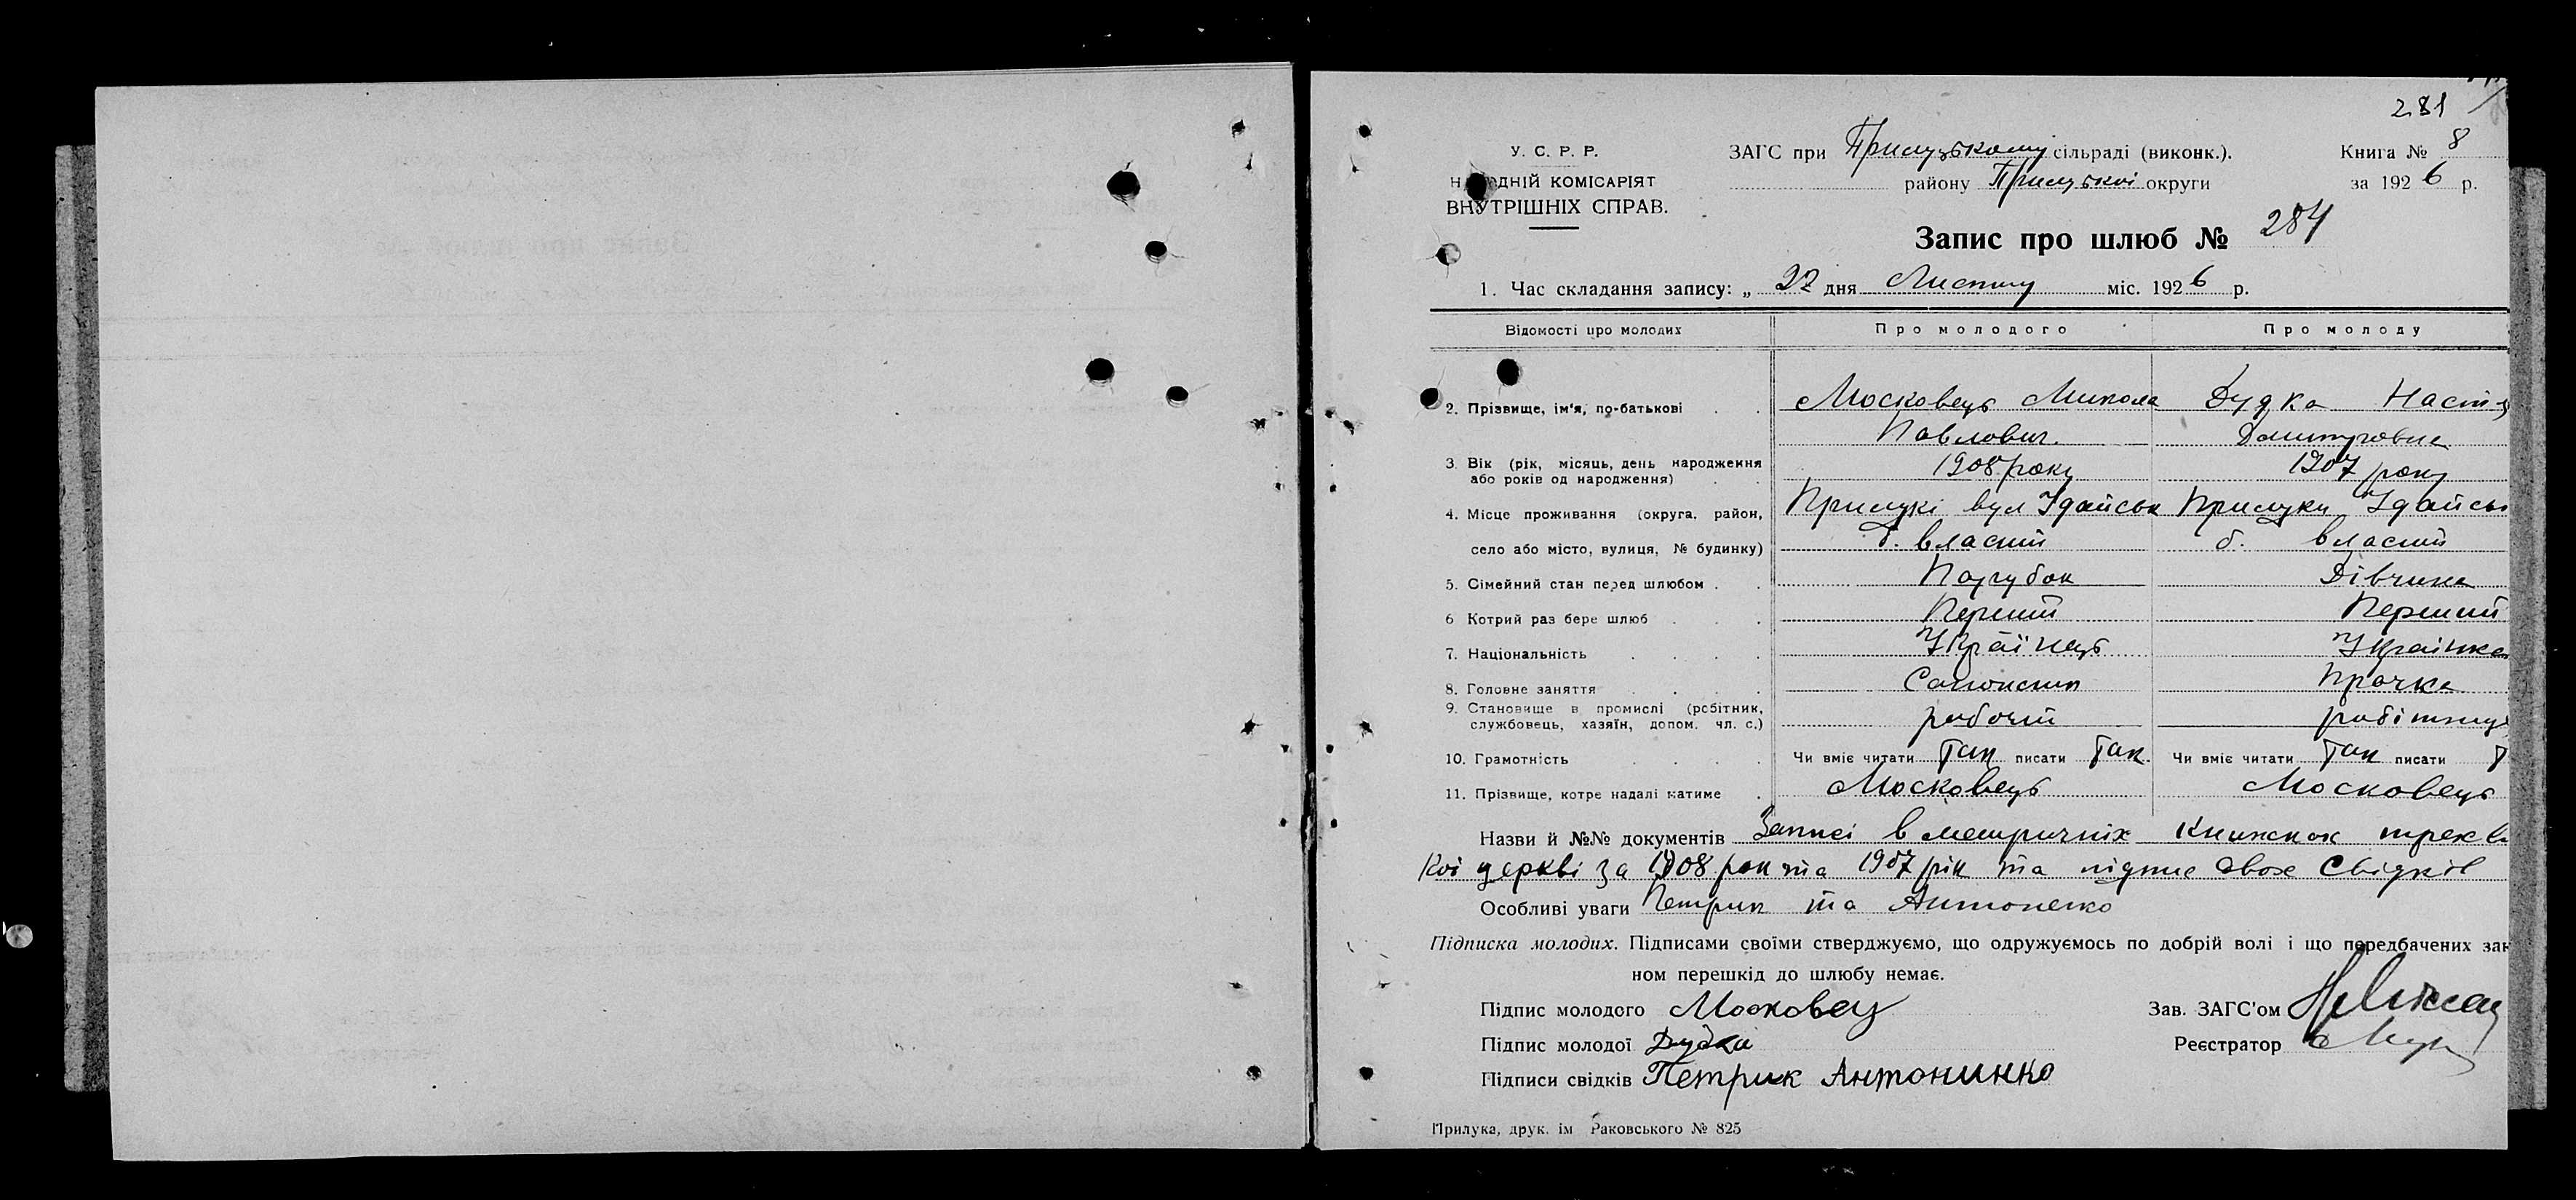 281
У. С. Р. Р.
НАРОДНІЙ КОМІСАРІЯТ
ВНУТРІШНІХ СПРАВ.
ЗАГС при Прилуцькому сільраді (виконк.).
району Прилуцької округи
Книга № 8
за 1926 р.
Запис про шлюб № 284
1. Час складання запису: „ 27 дня Листпу міс. 1926 р.
Відомості про молодих Про молодого Про молоду
2. Прізвище, ім'я, по-батькові Московець Микола Дудка Настя
Павлович. Дмитровна
3. Вік (рік, місяць, день народження 1908 року 1907 року
або років од народження)
4. Місце проживання (округа, район, Прилукі вул Удайськ Прилуки Удайсь
село або місто, вулиця, № будинку) б. власний б. власний
5. Сімейний стан перед шлюбом Парубок Дівчина
6 Котрий раз бере шлюб Перший Перший
7. Національність Українець Українка
8. Головне заняття Прачка
9. Становище в промислі (робітник,
службовець, хазяїн, допом. чл. с.) рабочий робітниця
10. Грамотність Чи вміє читати Так писати Так. Чи вміє читати Так писати Т
11. Прізвище, котре надалі матиме Московець Московець
Назви й №№ документів Записі в метричніх книжках
кої церкві за 1908 рок та 1907 рік та підпис двох свідків
Особливі уваги Петрик та Антоненко
Підписка молодих. Підписами своїми стверджуємо, що одружуємось по добрій волі і що передбачених зак
ном перешкід до шлюбу немає.
Підпис молодого Московец
Зав. ЗАГС'ом
Підпис молодої Дудка
Реєстратор
Підписи свідків Петрик Антонинко
Прилука, друк. ім Раковського № 825